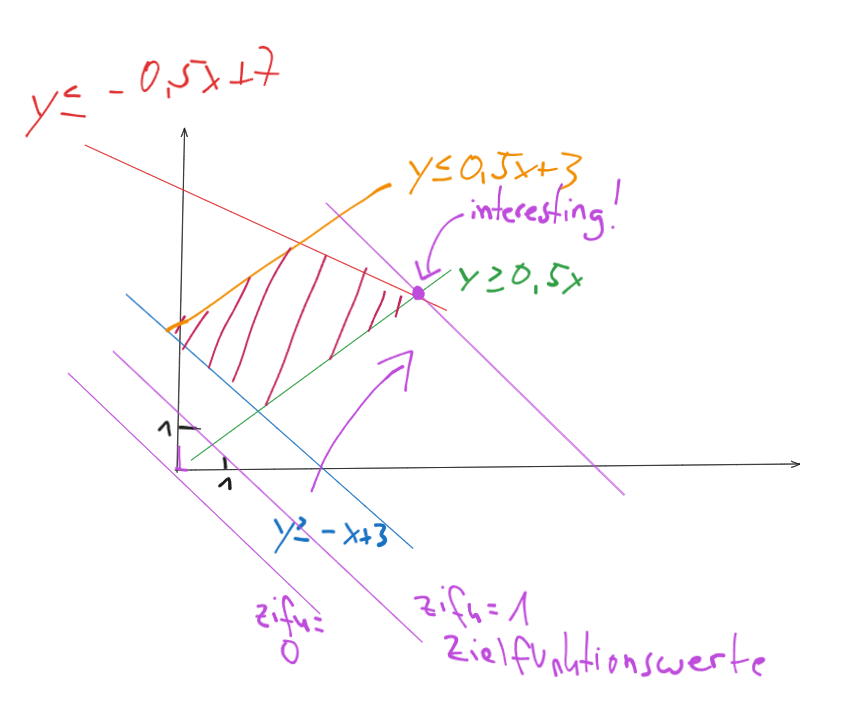 y ≤ - 0,5x+7
y ≤ 0,5x+3
interesting!
y ≥ 0,5x
1
1
y ≥ - x+3
zifu =
0
zifu = 1
Zielfunktionswerte